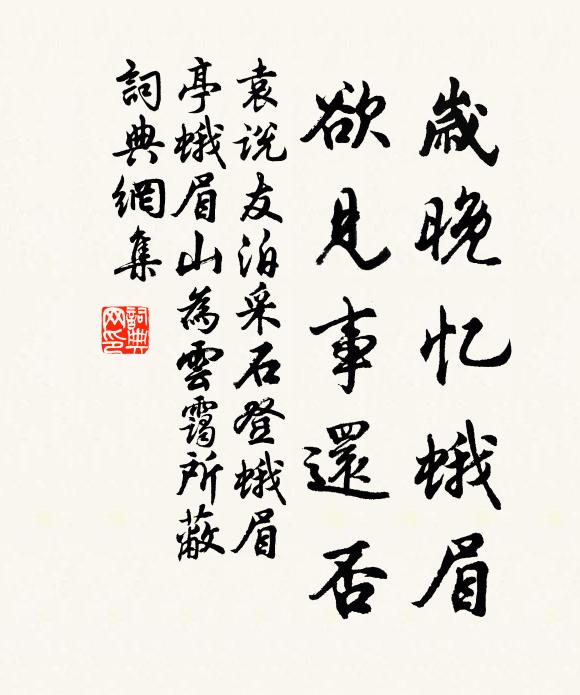 歲晚忆蛾眉
欲見事還否
袁说友泊采石登蛾眉
亭蛾眉山為雲靄所蔽
詞典網集
詞典
网印